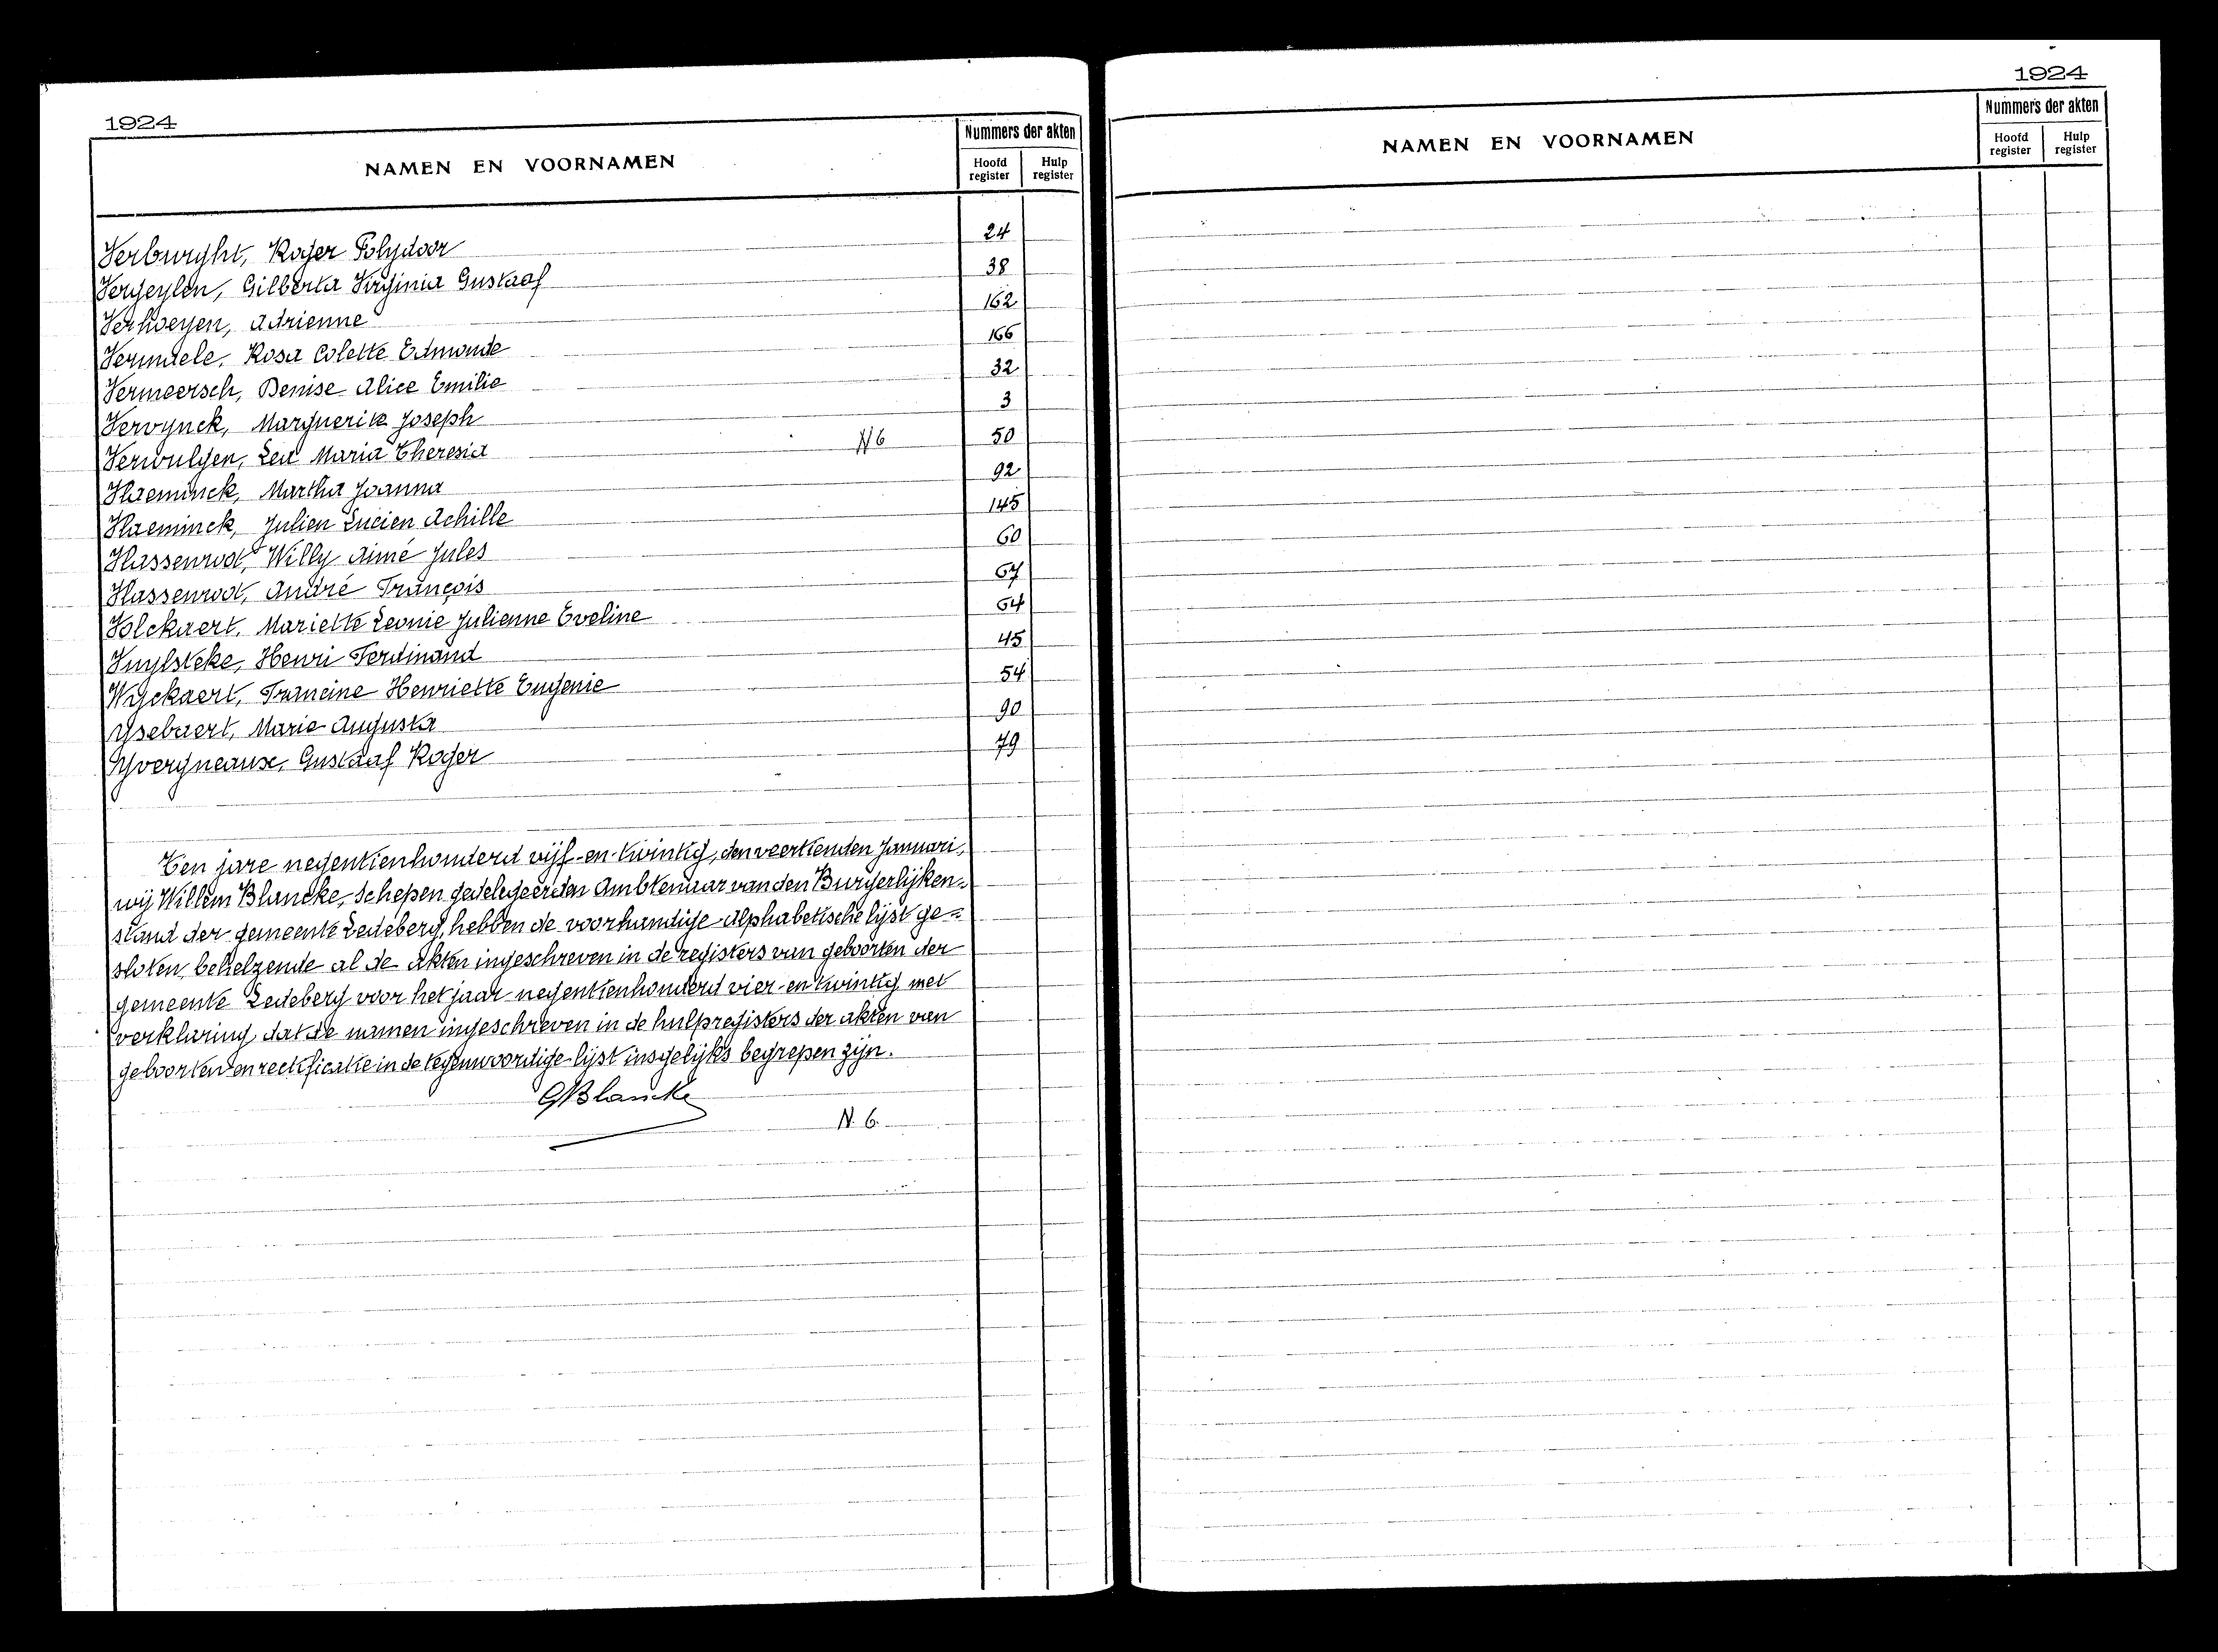 1924
NAMEN EN VOORNAMEN
Nummers der akten
Hoofd register
Hulp register
Verburght, Roger Polydoor 24
Vergeylen, Gilberta Virginia Gustaaf 38
Verhoeyen, Adrienne 162
Vermaele, Rosa Colette Edmonde 166
Vermeersch, Denise Alice Emilie 32
Vervynck, Marguerite Joseph 3
Verwulgen, Lea Maria Theresia N6 50
Vlaeminck, Martha Joanna 92
Vlaeminck, Julien Lucien Achille 145
Vlassenroot, Willy Aimé Jules 60
Vlassenroot, André François 67
Volckaert, Mariette Leonie Julienne Eveline 64
Vuylsteke, Henri Ferdinand 45
Wyckaert, Francine Henriette Eugenie 54
Ysebaert, Marie Augusta 90
Yvergneaux, Gustaaf Roger 79
Ten jare negentienhonderd vijf-en-twintig, den veertienden Januari,
wij Willem Blancke, Schepen gedelegeerden Ambtenaar van den Burgerlijken-
stand der gemeente Ledeberg, hebben de voorhandige Alphabetische lijst ge=
sloten, behelzende al de akten ingeschreven in de registers van geboorten der
gemeente Ledeberg voor het jaar negentienhonderd vier-en-twintig met
verklaring dat de namen ingeschreven in de hulpregisters der akten van
geboorten en rectificatie in de tegenwoordige lijst insgelijks begrepen zijn.
GBlancke
N. 6.
1924
NAMEN EN VOORNAMEN
Nummers der akten
Hoofd register
Hulp register